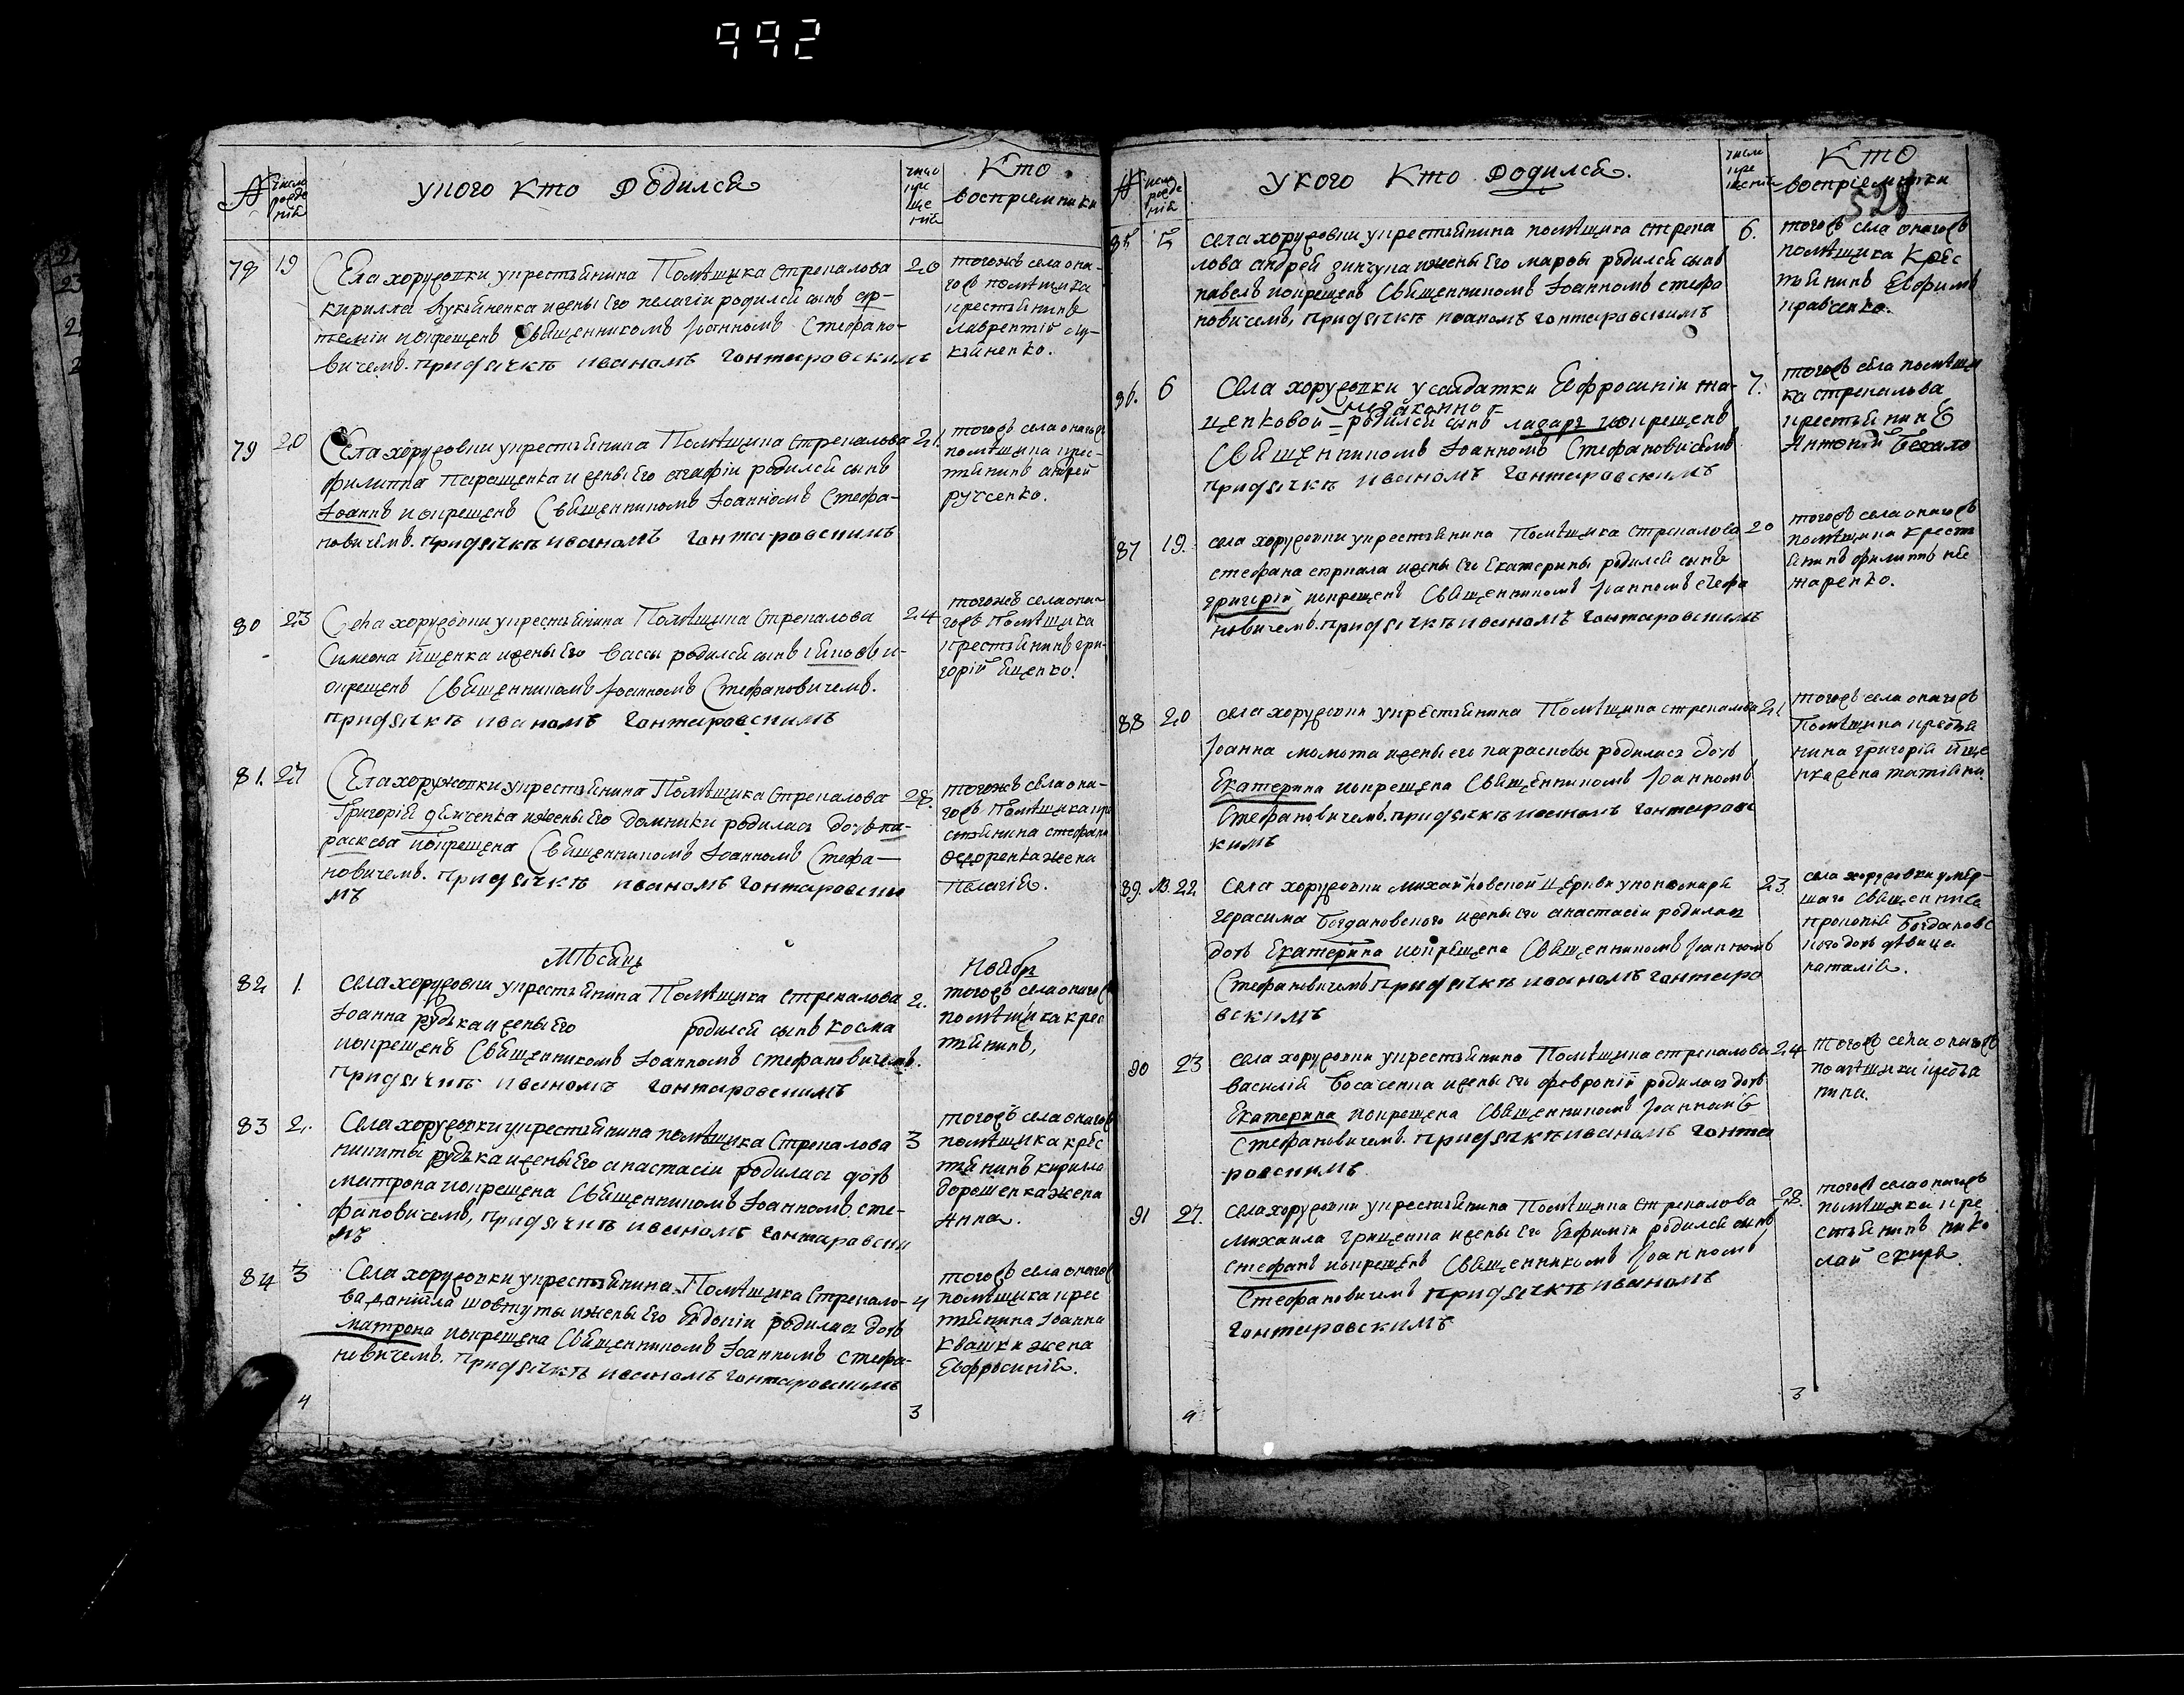 992
№ число рожденія у кого кто родился число крещенія Кто воспріемники
78 19 Села хоружовки у крестьянина Помѣщика Стрекалова 20
кирилла лукьяненка и жены Его пелагіи родился сынъ ар-
темій и окрещенъ Священникомъ Іоанномъ Стефано-
вичемъ. при дячкѣ иваномъ Гонтаровскимъ
тогожъ села она-
гожъ помѣщика
крестьянинъ
Лаврентій лу-
кьяненко.
79 20 Села хоружовки у крестьянина Помѣщика Стрекалова 21.
филиппа паращенка и жены Его агафіи родился сынъ
Іоаннъ и окрещенъ Священникомъ Іоанномъ Стефа-
новичемъ. при дячкѣ иваномъ Гонтаровскимъ
тогожъ села онагожъ
помѣщика крес-
тянинъ андрей
80 23 Села хоружовки у крестьянина Помѣщика Стрекалова 24
Симеона ищенка и жены Его вассы родился сынъ и
окрещенъ Священникомъ Іоанномъ Стефановичемъ.
при дячкѣ иваномъ Гонтаровскимъ
тогожъ села она-
гожъ Помѣщика
крестьянинъ гри-
горій ищенко.
81. 27 Села хоружовки у крестьянина Помѣщика Стрекалова 28.
Григорія демченка и жены Его домники родилась дочь па-
раскева и окрещена Священникомъ Іоанномъ Стефа-
новичемъ. при дячкѣ иваномъ Гонтаровски
мъ
тогожъ села она-
гожъ Помѣщика кре
стьянина стефана
Федоренка жена
Пелагія.
Мѣсяцъ Ноябрь
82 1. Села хоружовки у крестьянина Помѣщика Стрекалова 2.
Іоанна рудька и жены Его родился сынъ косма
и окрещенъ Священникомъ Іоанномъ Стефановичемъ.
при дячкѣ иваномъ Гонтаровскимъ
тогожъ села онагожъ
помѣщика крес
тянинъ,
83 2. Села хоружовки у крестьянина помѣщика Стрекалова 3
никиты рудька и жены Его анастасіи родилась дочь
матрона и окрещена Священникомъ Іоанномъ Сте-
фановичемъ, при дячкѣ иваномъ Гонтаровски
мъ
тогожъ села онагожъ
помѣщика крес
тянинъ кирилла
дорошенка жена
Анна.
84 3 Села хоружовки у крестьянина Помѣщика Стрекало- 4
ва даніила шовтуты и жены Его Евдокіи родилась дочь
матрона и окрещена Священникомъ Іоанномъ Стефа-
новичемъ. при дячкѣ иваномъ Гонтаровскимъ
тогожъ села онагожъ
помѣщика крес
тянина Іоанна
Квашки жена
Евфросинія.
4 3
№ число рожденія у кого кто родился. число крещенія Кто воспріемники
528
85 5 Села хоружовки у крестьянина помѣщика Стрека 6.
лова андрея зинчука и жены Его марфы родился сынъ
павелъ и окрещенъ Священникомъ Іоанномъ Стефа
новичемъ, при дячкѣ иваномъ Гонтаровскимъ
тогожъ села онагожъ
помѣщика Крес
тянинъ Евфимъ
кравченко.
86. 6 Села хоружовки у салдатки Евфросиніи 7.
незаконно
родился сынъ лазарь и окрещенъ
Священникомъ Іоанномъ Стефановичемъ
при дячкѣ иваномъ Гонтаровскимъ
тогожъ села помѣщи
ка стрекалова
крестьянинъ
Антоній
87 19. Села хоружовки у крестьянина Помѣщика Стрекалова 20
стефана и жены Его Екатерины родился сынъ
григорій, и окрещенъ Священникомъ Іоанномъ Стефа
новичемъ. при дячкѣ иваномъ Гонтаровскимъ
тогожъ села онагожъ
помѣщика кресть
янинъ филиппъ
88 20 Села хоружовки у крестьянина Помѣщика стрекалова 21
Іоанна момота и жены его парасковы родилась дочь
Екатерина и окрещена Священникомъ Іоанномъ
Стефановичемъ. при дячкѣ иваномъ Гонтаровс
кимъ
тогожъ села онагожъ
Помѣщика крестья
нина григорія ище
нка жена татіана
89. 22 Села хоружовки михайловской церкви у пономаря 23
герасима Богдановского и жены Его анастасіи родилась
дочь Екатерина и окрещена Священникомъ Іоанномъ
Стефановичемъ при дячкѣ иваномъ Гонтаро
вскимъ
села хоружовки умер-
шаго священника
прокопія Богдановс
кого дочь дѣвица
наталія.
90 23 Села хоружовки у крестьянина Помѣщика стрекалова 24
василія и жены Его февроніи родилась дочь
Екатерина и окрещена Священникомъ Іоанномъ
Стефановичемъ. при дячкѣ иваномъ Гонта
ровскимъ
тогожъ села онагожъ
помѣщика крестья
нина.
91 27. Села хоружовки у крестьянина Помѣщика стрекалова 28.
михаила гриценка и жены Его Евфиміи родился сынъ
стефанъ и окрещенъ Священникомъ Іоанномъ
Стефановичемъ при дячкѣ иваномъ
Гонтаровскимъ
тогожъ села онагожъ
помѣщика кре
стьянинъ нико
лай
3